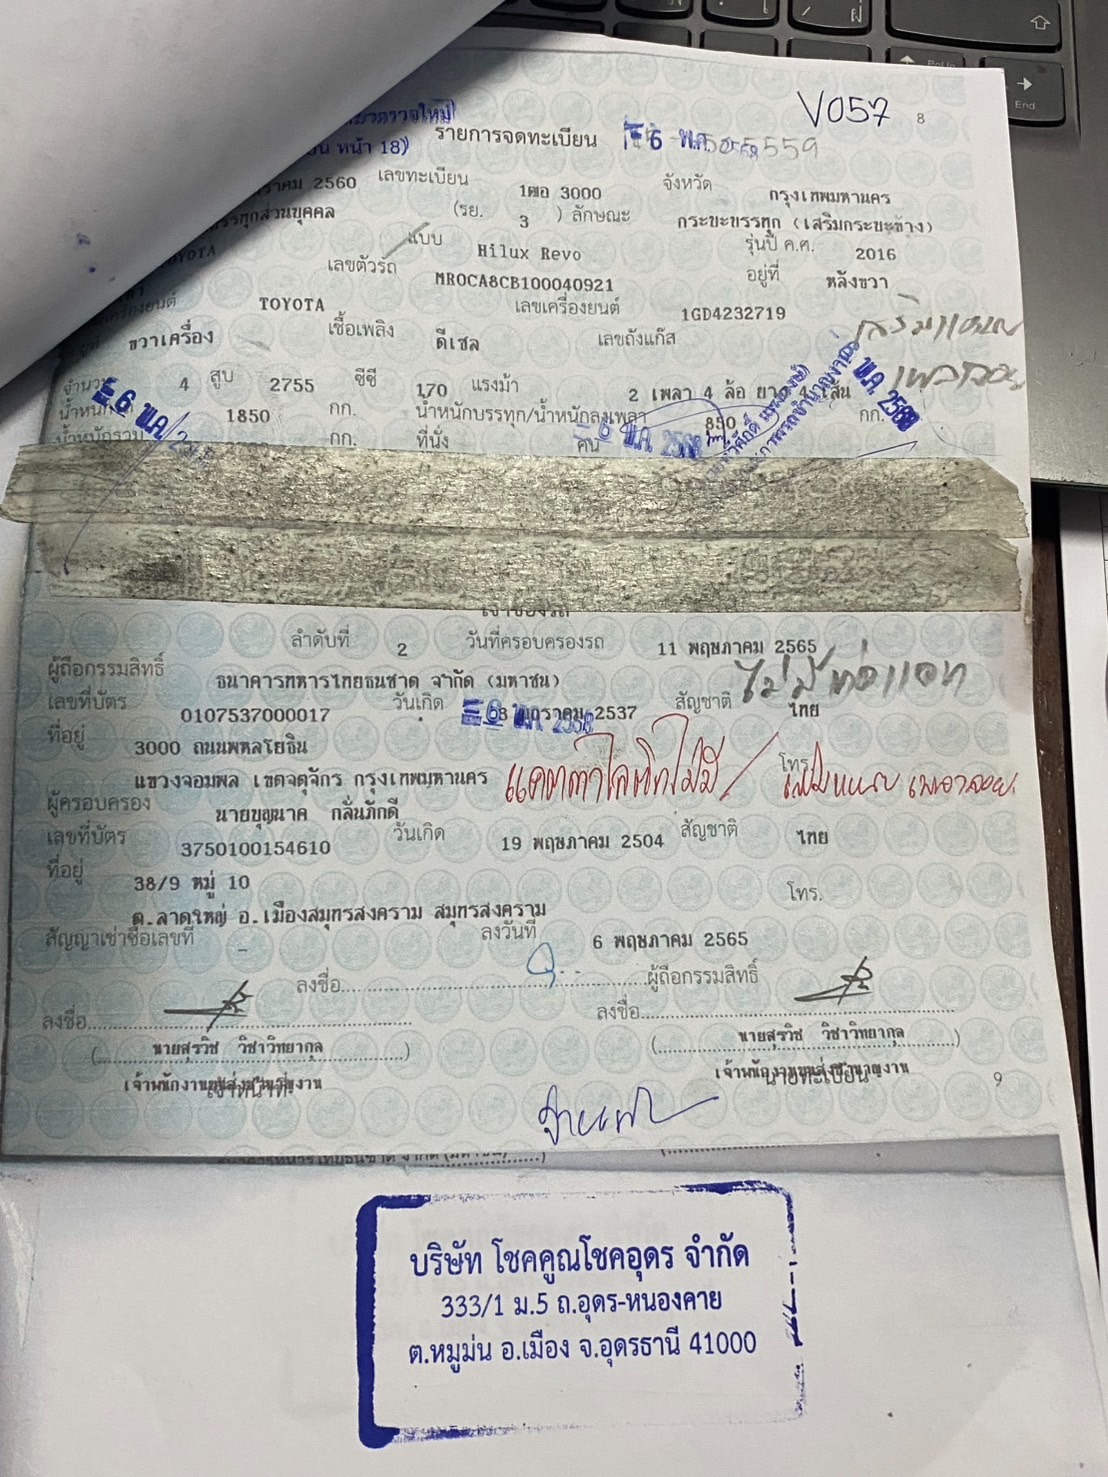 V057
8
รายการจดทะเบียน
น หน้า 18)
2560 เลขทะเบียน 1ฒอ 3000 จังหวัด กรุงเทพมหานคร
รรทุกส่วนบุคคล (รย. 3 ) ลักษณะ กระบะบรรทุก (เสริมกระบะข้าง)
TOYOTA แบบ Hilux Revo รุ่นปี ค.ศ. 2016
เลขตัวรถ MR0CA8CB100040921 อยู่ที่ หลังขวา
TOYOTA เลขเครื่องยนต์ 1GD4232719
ขวาเครื่อง เชื้อเพลิง ดีเซล เลขถังแก๊ส
จำนวน 4 สูบ 2755 ซีซี 170 แรงม้า 2 เพลา 4 ล้อ ยาง 4 เส้น
1850 กก. น้ำหนักบรรทุก/น้ำหนักลงเพลา 850 กก.
น้ำหนักรวม กก. ที่นั่ง คน
6 พ.ค. 2568
เจ้าของรถ
ลำดับที่ 2 วันที่ครอบครองรถ 11 พฤษภาคม 2565
ผู้ถือกรรมสิทธิ์ ธนาคารทหารไทยธนชาต จำกัด (มหาชน)
ไม่มี
เลขที่บัตร 0107537000017 วันเกิด 2537 สัญชาติ ไทย
ที่อยู่ 3000 ถนนพหลโยธิน
แขวงจอมพล เขตจตุจักร กรุงเทพมหานคร โทร.
ผู้ครอบครอง นายบุญนาค กลั่นภักดี
เลขที่บัตร 3750100154610 วันเกิด 19 พฤษภาคม 2504 สัญชาติ ไทย
ที่อยู่ 38/9 หมู่ 10 โทร.
ต.ลาดใหญ่ อ.เมืองสมุทรสงคราม สมุทรสงคราม
สัญญาเช่าซื้อเลขที่ - ลงวันที่ 6 พฤษภาคม 2565
ลงชื่อ ผู้ถือกรรมสิทธิ์
ลงชื่อ ลงชื่อ
( นายสุรวิช วิชาวิทยากุล ) ( นายสุรวิช วิชาวิทยากุล )
เจ้าพนักงานขนส่งชำนาญงาน เจ้าพนักงานขนส่งชำนาญงาน
เจ้าหน้าที่ นายทะเบียน
9
บริษัท โชคคูณโชคอุดร จำกัด
333/1 ม.5 ถ.อุดร-หนองคาย
ต.หมูม่น อ.เมือง จ.อุดรธานี 41000